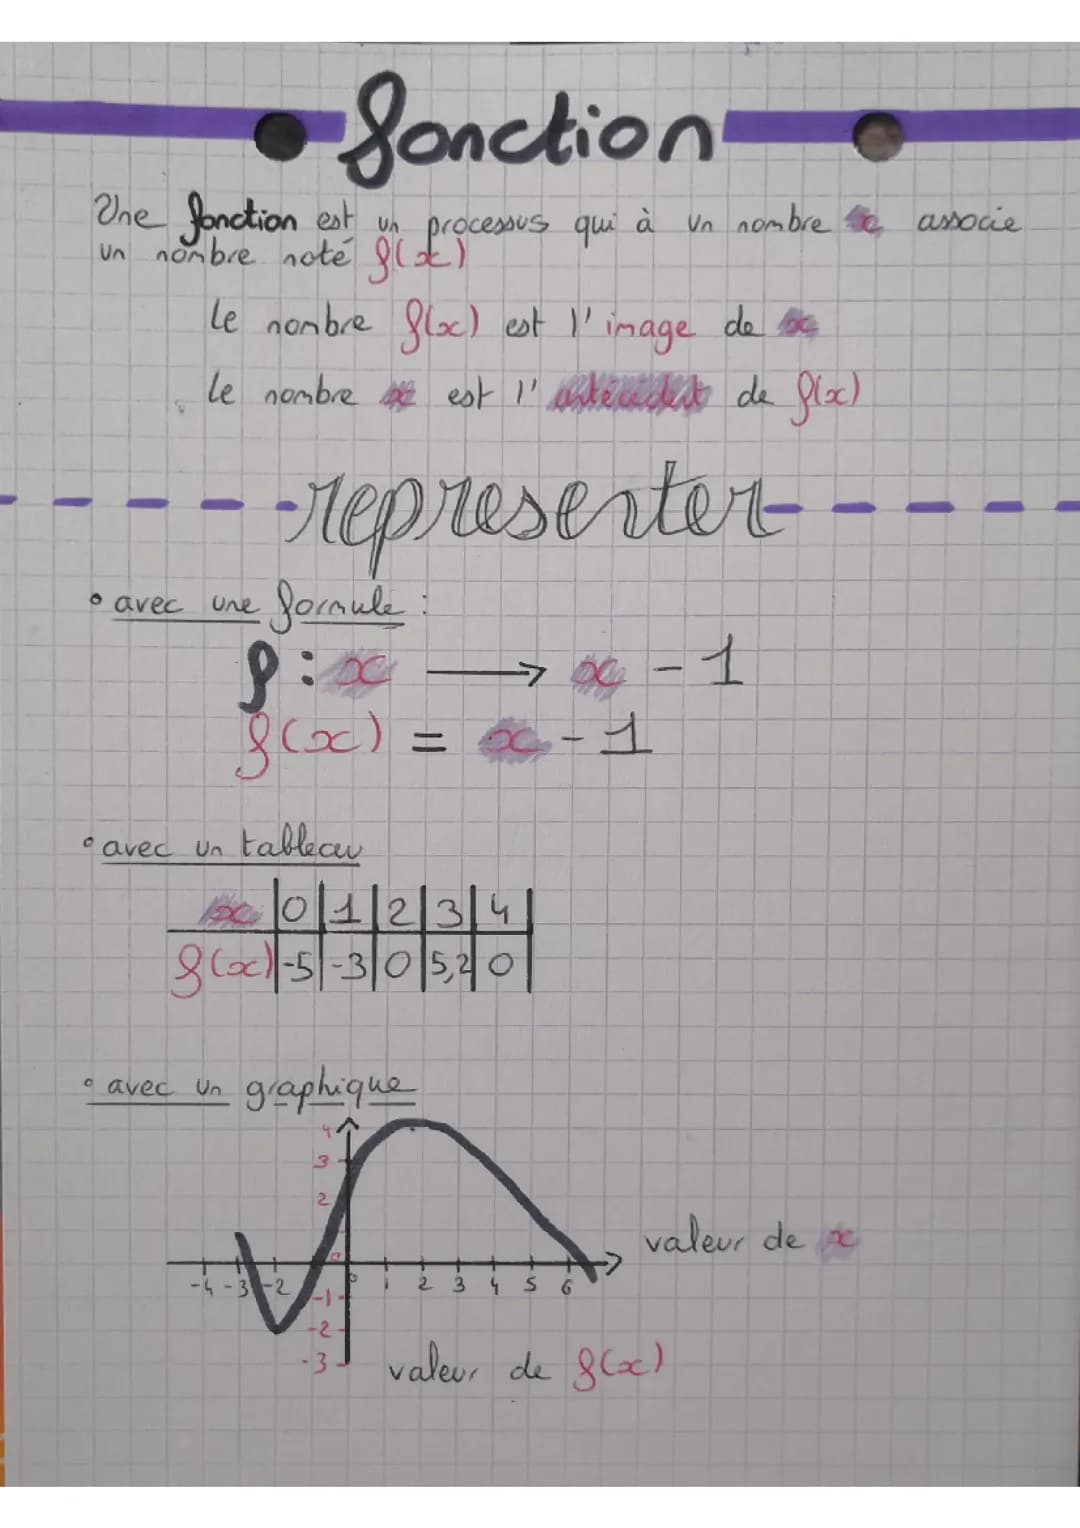 fonction
Une fonction est un processus qui à un nombre x associe
un nombre noté f(x)
le nombre f(x) est l'image de x
le nombre x est l'antécédent de f(x)
representer
• avec une formule :
f : x ⟶ x - 1
f(x) = x - 1
• avec un tableau
x 0 1 2 3 4
f(x) -5 -3 0 5,2 0
• avec un graphique
4
3
2
0
-4 -3 -2 0 1 2 3 4 5 6
valeur de x
-1
-2
-3
valeur de f(x)